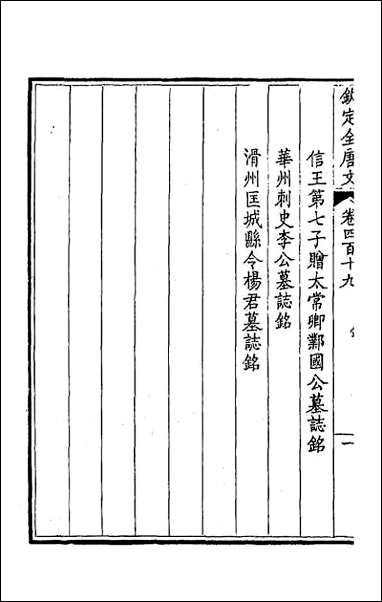 欽定全唐文 卷四百十九 一
信王第七子贈太常卿鄴國公墓誌銘
華州刺史李公墓誌銘
滑州匡城縣令楊君墓誌銘